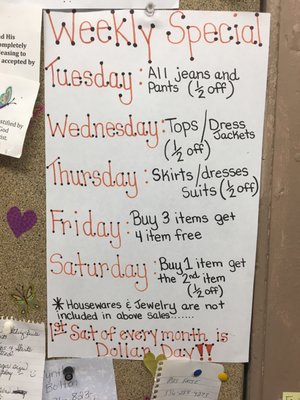 Weekly Special
Tuesday: All jeans and
Pants (1/2 off)
Wednesday: Tops/Dress
Jackets
(1/2 off)
Thursday: Skirts/dresses
Suits (1/2 off)
Friday: Buy 3 items get
4 item free
Saturday: Buy 1 item get
the 2nd item
(1/2 off)
* Housewares & Jewelry are not
included in above sales.......
1st Sat of every month is
Dollar Day!!
and His
completely
pleasing to
accepted by
God